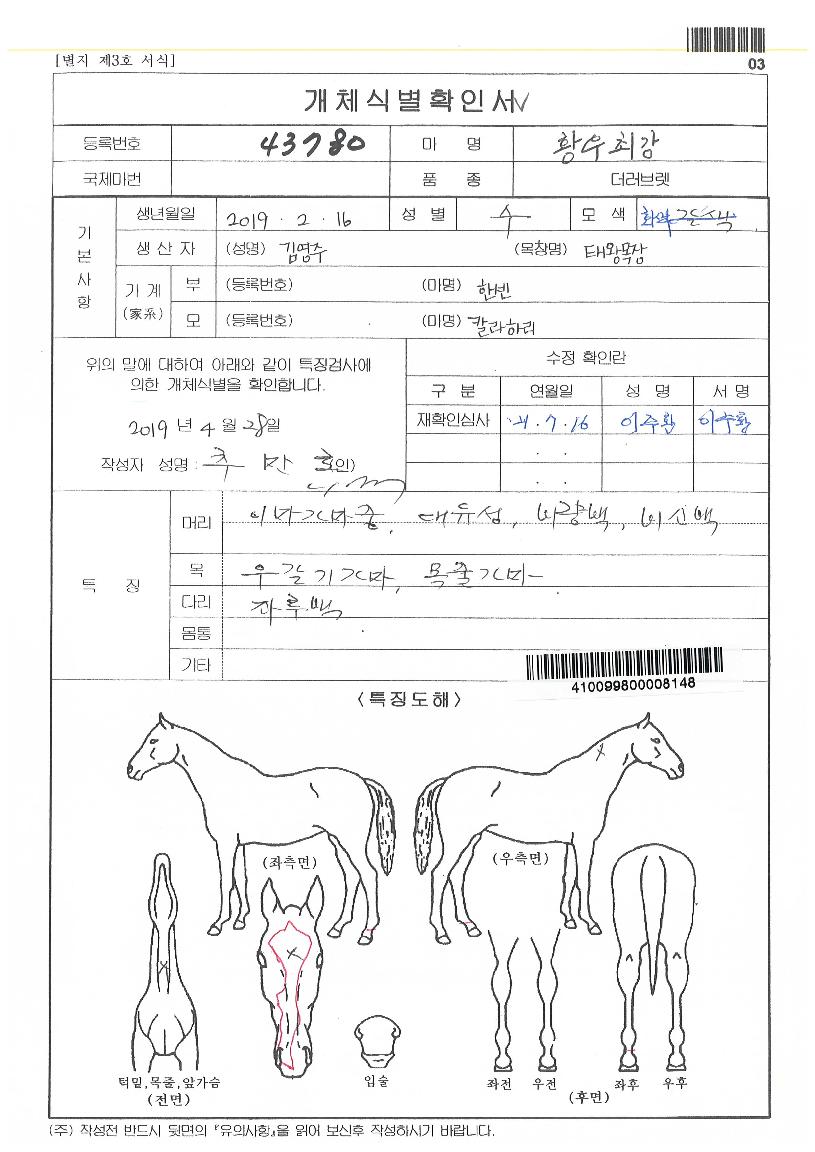 03
[별지 제3호 서식]
개체식별확인서
등록번호 43780 마 명 황우최강
국제마번 품 종 더러브렛
기본사항
생년월일 2019 . 2 . 16 성 별 수 모 색
생 산 자 (성명) 김영주 (목장명) 태왕목장
기 계 (家系) 부 (등록번호) (마명) 한센
모 (등록번호) (마명) 칼라하리
위의 말에 대하여 아래와 같이 특징검사에
의한 개체식별을 확인합니다.
2019 년 4 월 28일
작성자 성명 : (인)
수정 확인란
구 분 연월일 성 명 서 명
재확인심사 '21 . 7 . 16
. .
. .
특 징
머리 이마가마중, 대유성, 비량백, 비신백
목 우갈기가마, 목줄가마
다리 좌후백
몸통
기타
410099800008148
<특징도해>
(좌측면) (우측면)
턱밑,목줄,앞가슴
(전면)
입술
좌전 우전 좌후 우후
(후면)
(주) 작성전 반드시 뒷면의 『유의사항』을 읽어 보신후 작성하시기 바랍니다.